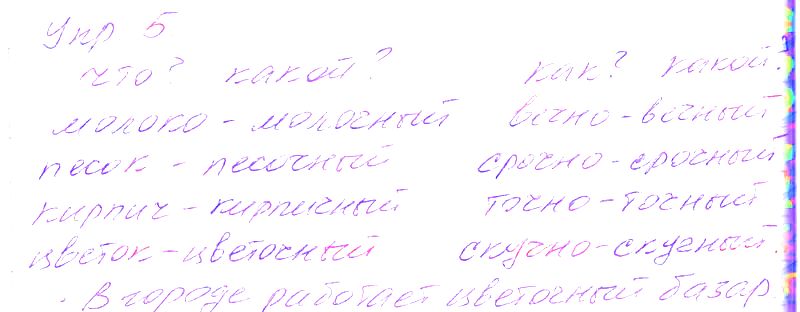 Упр 5
что? какой? как? какой?
молоко - молочный вечно - вечный
песок - песочный срочно - срочный
кирпич - кирпичный точно - точный
цветок - цветочный скучно - скучный.
В городе работает цветочный базар